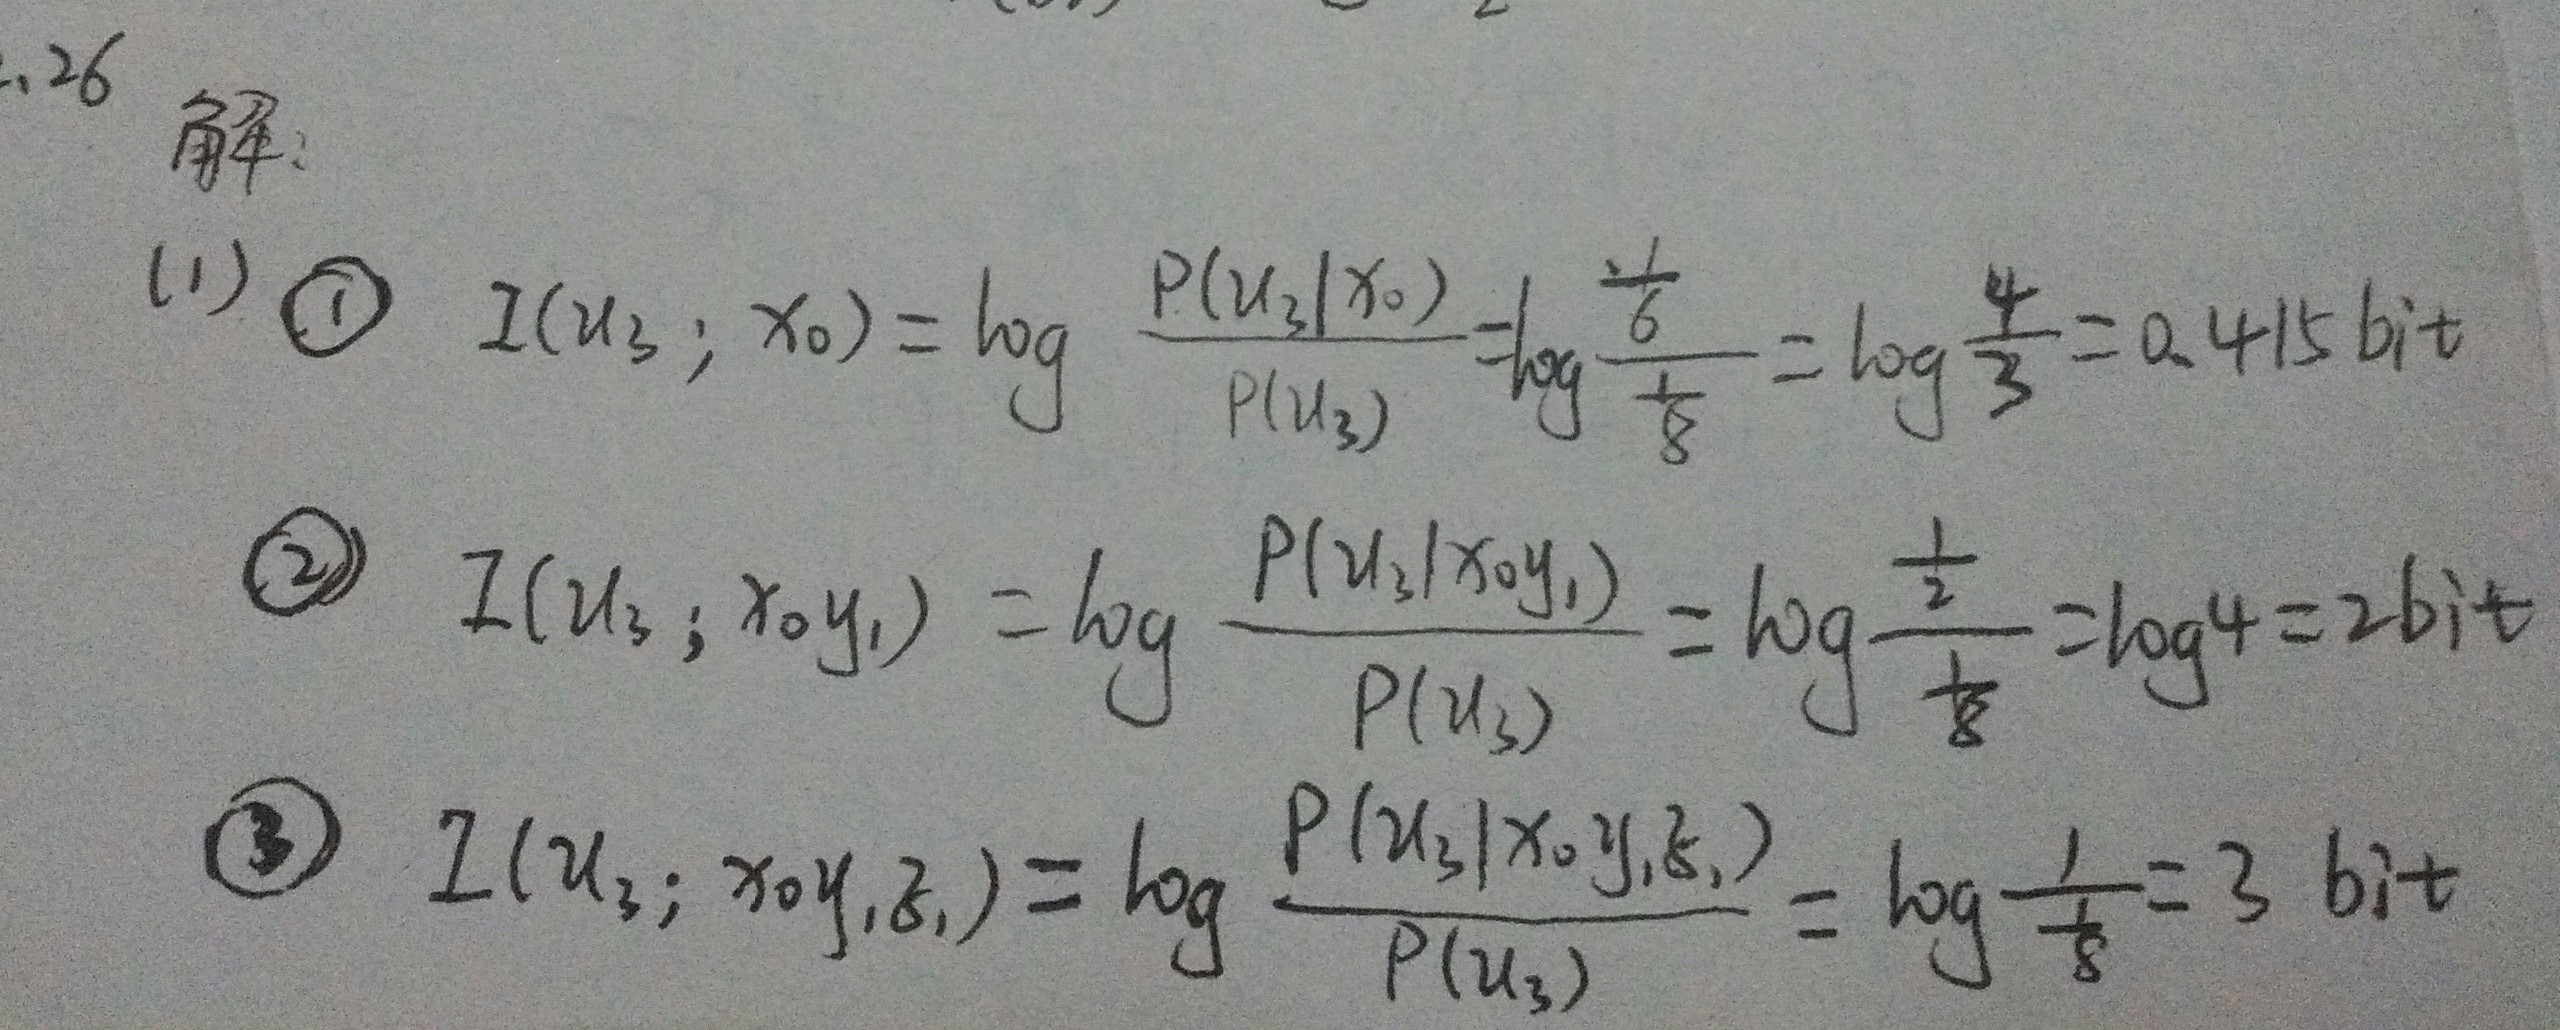 .26
解:
(1) ① I(u₃; x₀) = log P(u₃|x₀)/P(u₃) = log (1/6)/(1/8) = log 4/3 = 0.415 bit
② I(u₃; x₀y₁) = log P(u₃|x₀y₁)/P(u₃) = log (1/2)/(1/8) = log4 = 2bit
③ I(u₃; x₀y₁z₁) = log P(u₃|x₀y₁z₁)/P(u₃) = log 1/(1/8) = 3 bit